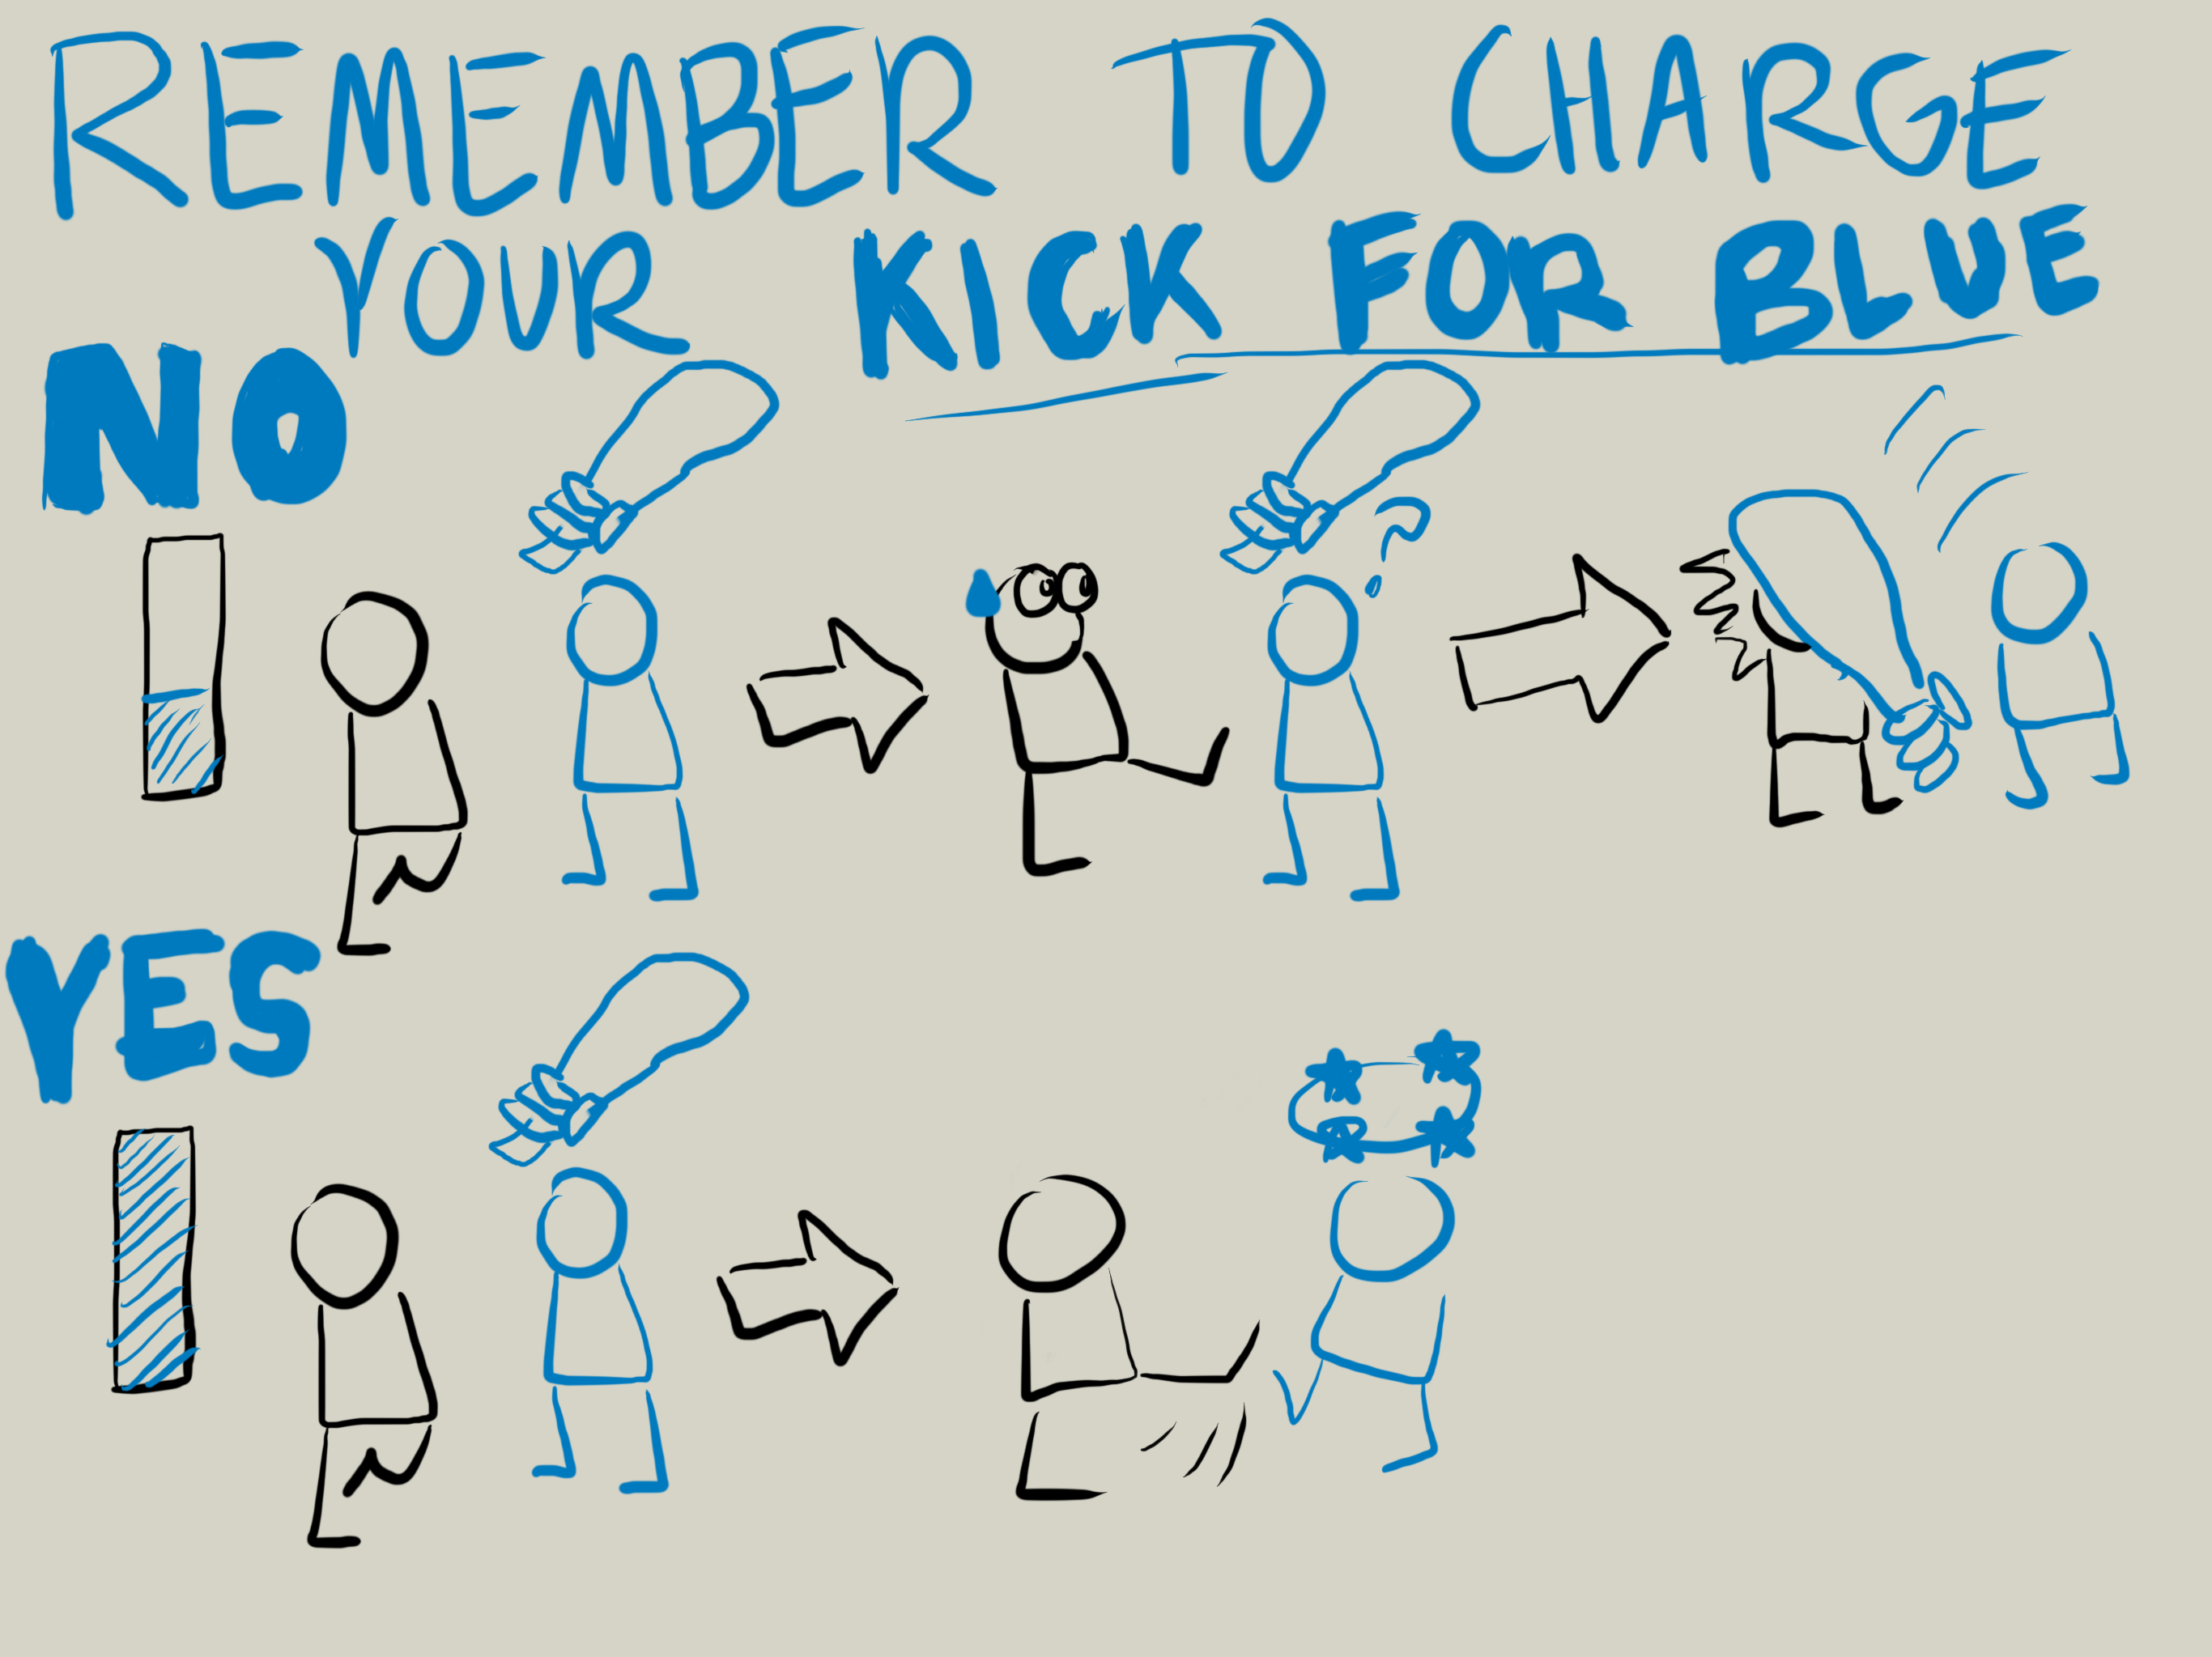 REMEMBER TO CHARGE
YOUR KICK FOR BLUE
NO
?
YES